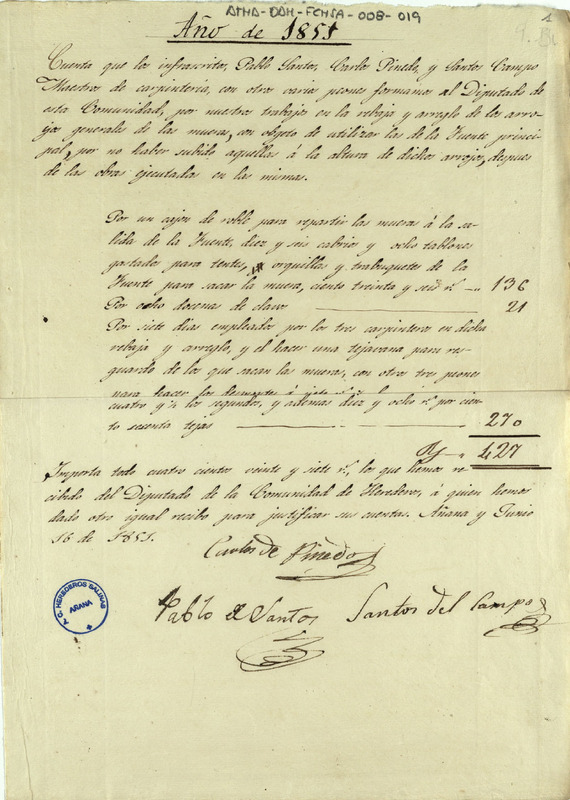 ATHA-DAH-FCHSA-008-019
1
Año de 1851
Cuenta que los infrascritos, Pablo Santos, Carlos Pinedo, y Santos Campo
Maestros de carpinteria, con otros varios peones formamos al Diputado de
esta Comunidad, por nuestro trabajo en la rebaja y arreglo de los arro-
yos generales de las mueras, con objeto de utilizar las de la Fuente princi-
pal, por no haber subido aquellas á la altura de dichos arroyos, despues
de las obras ejecutadas en las mismas.
Por un cajon de roble para repartir las mueras á la sa-
lida de la Fuente, diez y seis cabrios y ocho tablones
gastados para tentes, orquillas y trabuquetes de la
Fuente para sacar la muera, ciento treinta y seis r.s 136
Por ocho docenas de clavos 21
Por siete dias empleados por los tres carpinteros en dicha
rebaja y arreglo, y el hacer una tejavana para res-
guardo de los que sacan las mueras, con otros tres peones
para hacer los desmontes á siete r.s
cuatro y ½ los segundos, y ademas diez y ocho r.s por cien-
to sesenta tejas 270
R.s 427
Importa todo cuatro cientos veinte y siete r.s, los que hemos re-
cibido del Diputado de la Comunidad de Herederos, á quien hemos
dado otro igual recibo para justificar sus cuentas. Añana y Junio
16 de 1851.
Carlos de Pinedo
Pablo de Santos Santos del Campo
G. HEREDEROS SALINAS
AÑANA